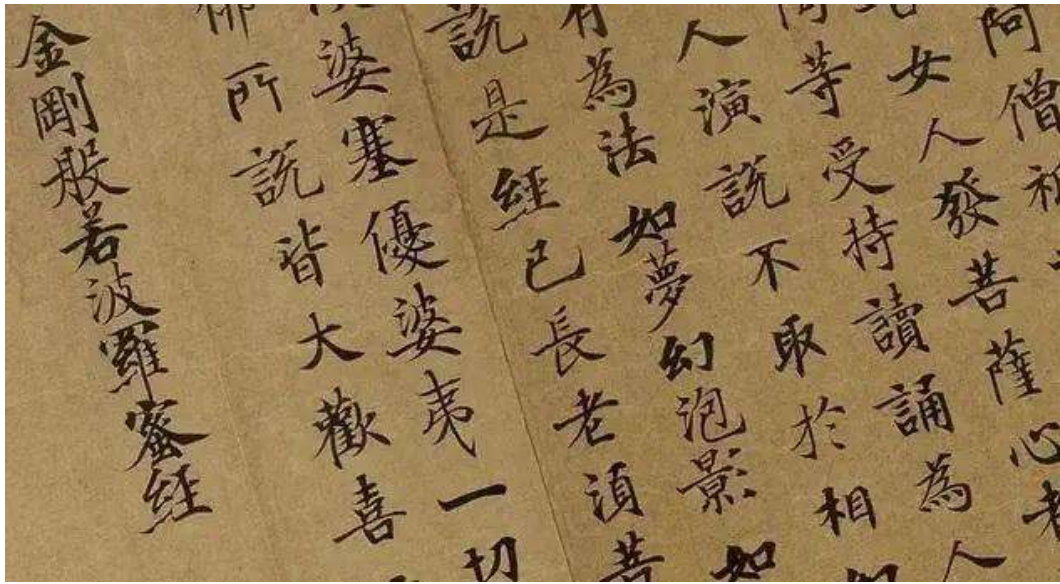 阿僧
女人發菩薩心者
等受持讀誦為人
人演說不取於相如
有為法如夢幻泡影如
說是經已長老須菩
婆塞優婆夷一切
佛所說皆大歡喜
金剛般若波羅蜜經